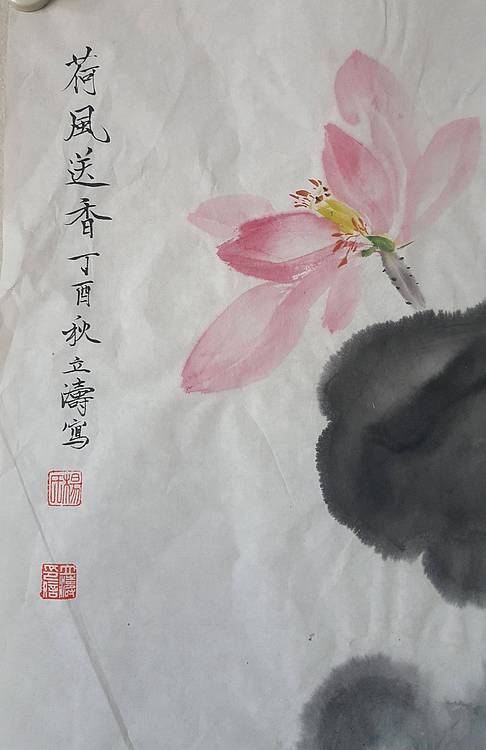 荷風送香丁酉秋立濤寫